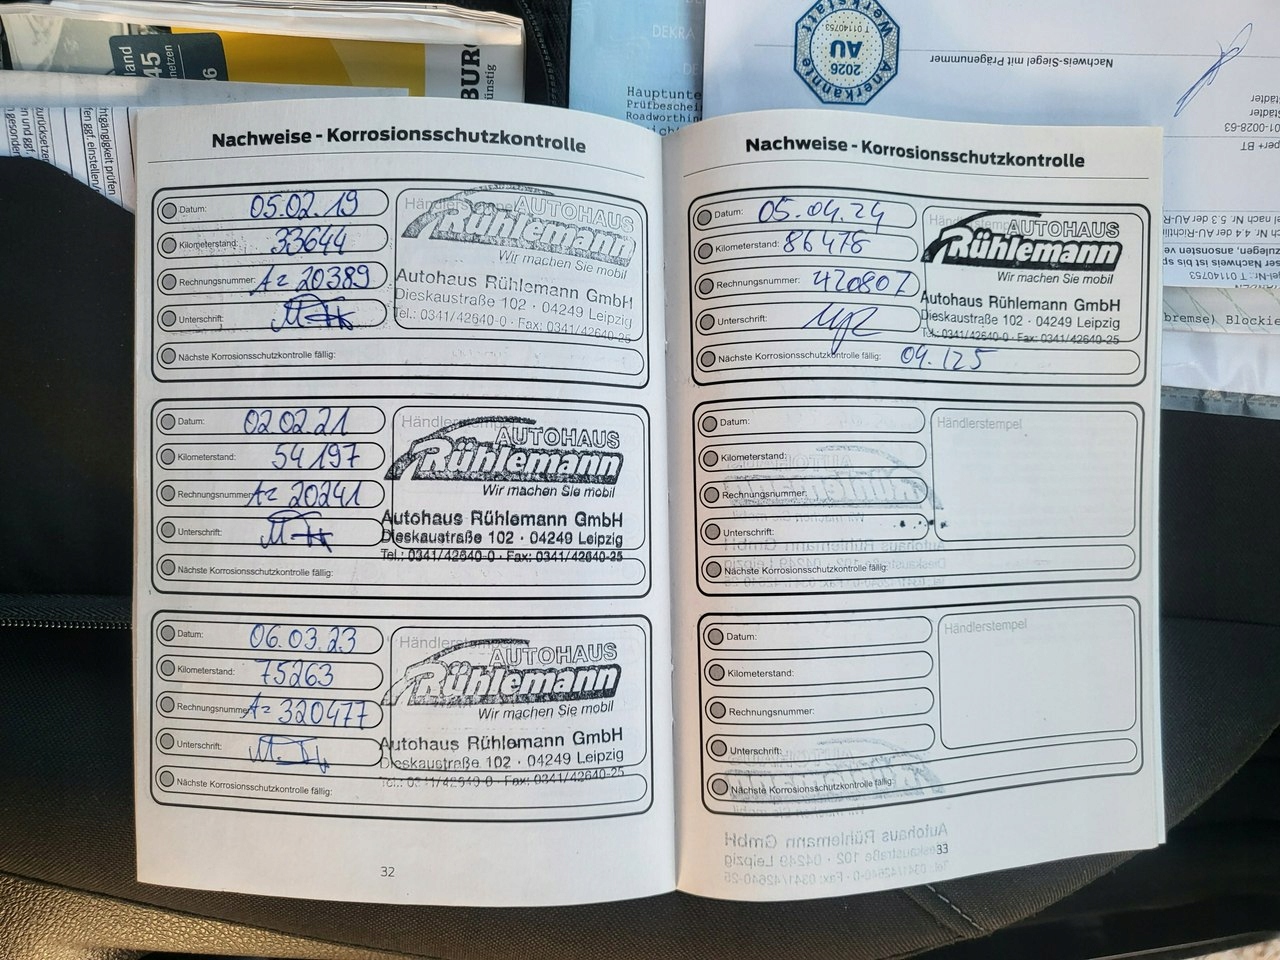 land
45
netzen
6
BURG
ünstig
DEKRA
Hauptunte
Prüfbeschei
Roadworthin
Anerkannte Werkstatt
AU
2026
T 0140753
Nachweis-Siegel mit Prägenummer
01-0028-63
per+ BT
bremse) Blockie
Nachweise - Korrosionsschutzkontrolle
Datum: 05.02.19
Kilometerstand: 33644
Rechnungsnummer: Az 20389
Unterschrift:
Nächste Korrosionsschutzkontrolle fällig:
Händlerstempel
AUTOHAUS
Rühlemann
Wir machen Sie mobil
Autohaus Rühlemann GmbH
Dieskaustraße 102 · 04249 Leipzig
Tel.: 0341/42640-0 · Fax: 0341/42640-25
Datum: 02.02.21
Kilometerstand: 54197
Rechnungsnummer Az 20241
Unterschrift:
Nächste Korrosionsschutzkontrolle fällig:
Händlerstempel
AUTOHAUS
Rühlemann
Wir machen Sie mobil
Autohaus Rühlemann GmbH
Dieskaustraße 102 · 04249 Leipzig
Tel.: 0341/42640-0 · Fax: 0341/42640-25
Datum: 06.03.23
Kilometerstand: 75263
Rechnungsnummer Az 320477
Unterschrift:
Nächste Korrosionsschutzkontrolle fällig:
Händlerstempel
AUTOHAUS
Rühlemann
Wir machen Sie mobil
Autohaus Rühlemann GmbH
Dieskaustraße 102 · 04249 Leipzig
Tel.: 0341/42640-0 · Fax: 0341/42640-25
32
Nachweise - Korrosionsschutzkontrolle
Datum: 05.04.24
Kilometerstand: 86478
Rechnungsnummer: 420807
Unterschrift:
Nächste Korrosionsschutzkontrolle fällig: 04.125
Händlerstempel
AUTOHAUS
Rühlemann
Wir machen Sie mobil
Autohaus Rühlemann GmbH
Dieskaustraße 102 · 04249 Leipzig
Tel.: 0341/42640-0 · Fax: 0341/42640-25
Datum:
Kilometerstand:
Rechnungsnummer:
Unterschrift:
Nächste Korrosionsschutzkontrolle fällig:
Händlerstempel
Datum:
Kilometerstand:
Rechnungsnummer:
Unterschrift:
Nächste Korrosionsschutzkontrolle fällig:
Händlerstempel
33